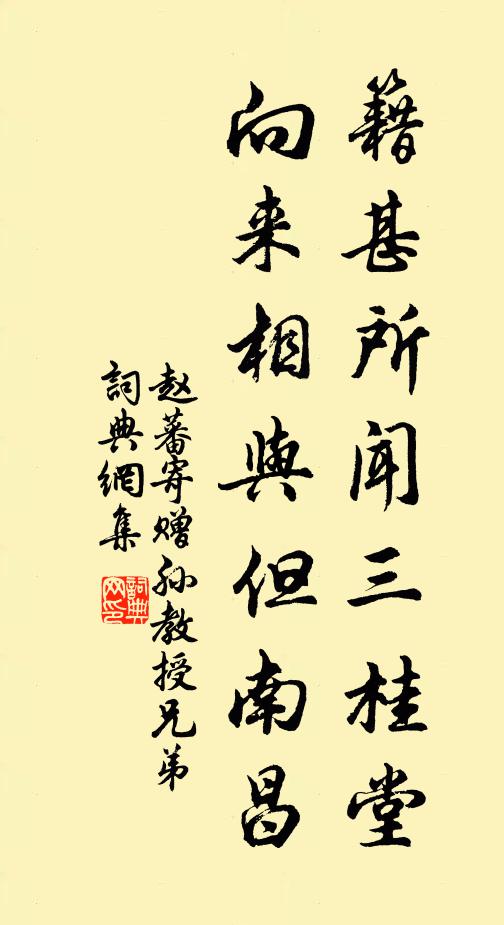 籍甚所闻三桂堂
向来相與但南昌
赵蕃寄赠孙教授兄弟
詞典網集
詞典
网印